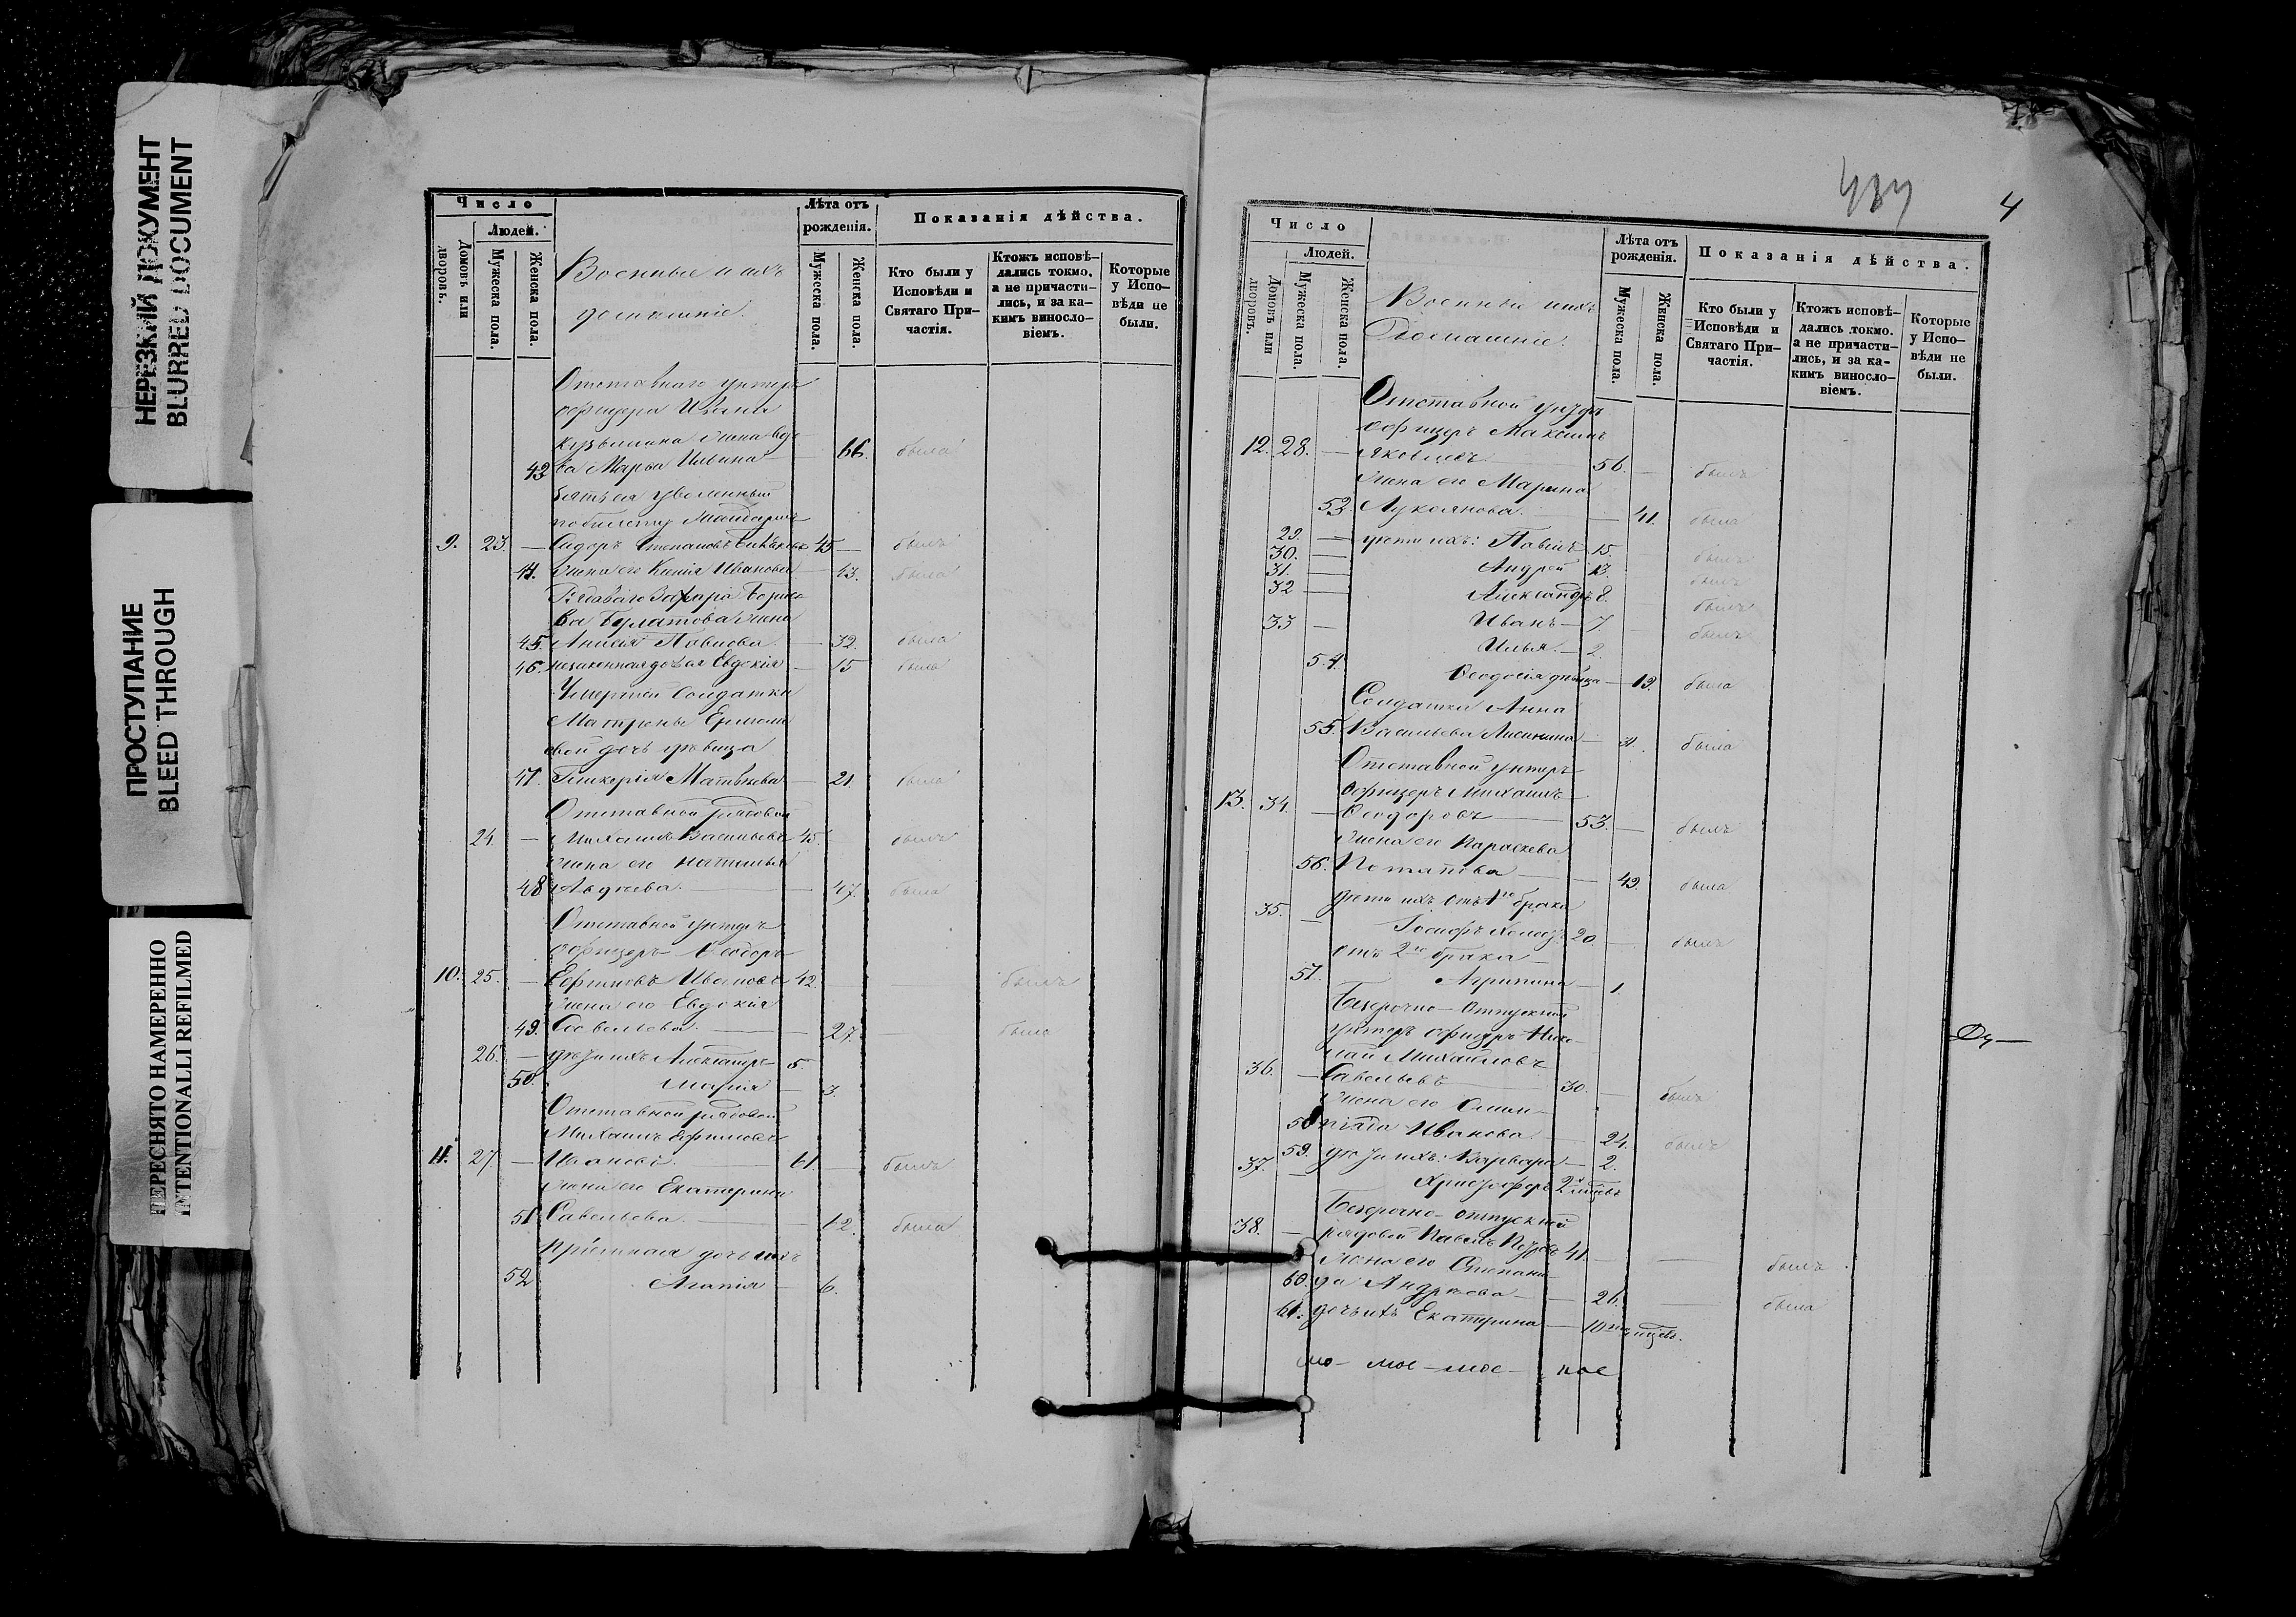 НЕРЕЗКИЙ ДОКУМЕНТ
BLURRED DOCUMENT
ПРОСТУПАНИЕ
BLEED THROUGH
ПЕРЕСНЯТО НАМЕРЕННО
INTENTIONALLI REFILMED
Число
Людей.
Домовъ или дворовъ.
Мужеска пола.
Женска пола.
Военные и ихъ
домашніе.
Лѣта отъ рожденія.
Мужеска пола.
Женска пола.
Показанія дѣйства.
Кто были у Исповѣди и Святаго Причастія.
Ктожъ исповѣдались токмо, а не причастились, и за какимъ винословіемъ.
Которые у Исповѣди не были.
Отставнаго унтеръ
офицера Ивана
Кузьмина жена вдо
42 ва Марья Ильина — 66. была
уволенный
по билету
9. 23. — Сидоръ Степановъ 45 — былъ
44. Жена его Ксенія Иванова — 43. была
Рядоваго Захара Борисо
ва Булатова жена
45. Анисія Павлова — 32. была
46. незаконная дочь ея Евдокія — 15 была
Умершей Солдатки
Матроны Ермола
евой дочь дѣвица
47. Гликерія Матвѣева — 21. была
Отставной рядовой
24. — Михаилъ Васильевъ 45. былъ
Жена его Наталья
48 Авдѣева. — 47. была
Отставной унтеръ
офицеръ Ѳеодоръ
10. 25. — Ефимовъ Ивановъ 42. былъ
Жена его Евдокія
49. Савельева. — 27. — была
26. — дѣти ихъ Александръ 5.
50. Марія — 3.
Отставной рядовой
Михаилъ Ефимовъ
11. 27. — Ивановъ. 61. — былъ
Жена его Екатерина
51. Савельева. — 62. была
Пріемная дочь ихъ
52 Агапія — 6.
4
Число
Людей.
Домовъ или дворовъ.
Мужеска пола.
Женска пола.
Военные ихъ
Домашніе.
Лѣта отъ рожденія.
Мужеска пола.
Женска пола.
Показанія дѣйства.
Кто были у Исповѣди и Святаго Причастія.
Ктожъ исповѣдались токмо. а не причастились, и за какимъ винословіемъ.
Которые у Исповѣди не были.
Отставной унтеръ
офицеръ Максимъ
12. 28. — Яковлевъ. 56. — былъ
Жена его Марина
53. Лукоянова. — 41. была
29. — дѣти ихъ: Павелъ 15. былъ
30. — Андрей 13. былъ
31. — Александръ 8. былъ
32 — Иванъ — 7. былъ
33 — Илья — 2.
54. Ѳеодосія дѣвица — 19. была
Солдатка Анна
55. Васильева — 31. была
Отставной унтеръ
офицеръ Михаилъ
13. 34. — Ѳеодоровъ 53. — былъ
Жена его Параскева
56. Потапова — 49. была
дѣти ихъ отъ 1го брака
35. — Іосифъ холос. 20. — былъ
отъ 2го брака —
57. Агрипина — 1.
Безсрочно-отпускной
унтеръ офицеръ Нико
лай Михайловъ
36. — Савельевъ 30. — былъ
Жена его Олим
58 піада Иванова. — 24. былъ
59. дѣти ихъ: Варвара — 2.
37. — Христофоръ 2 мѣсяцъ
Безсрочно-отпускной
38. — рядовой Павелъ Петровъ 41. — — былъ
Жена его Степани
60. да Андреева — 26. — была
61. дочь ихъ Екатерина — 10 мѣсяцев.